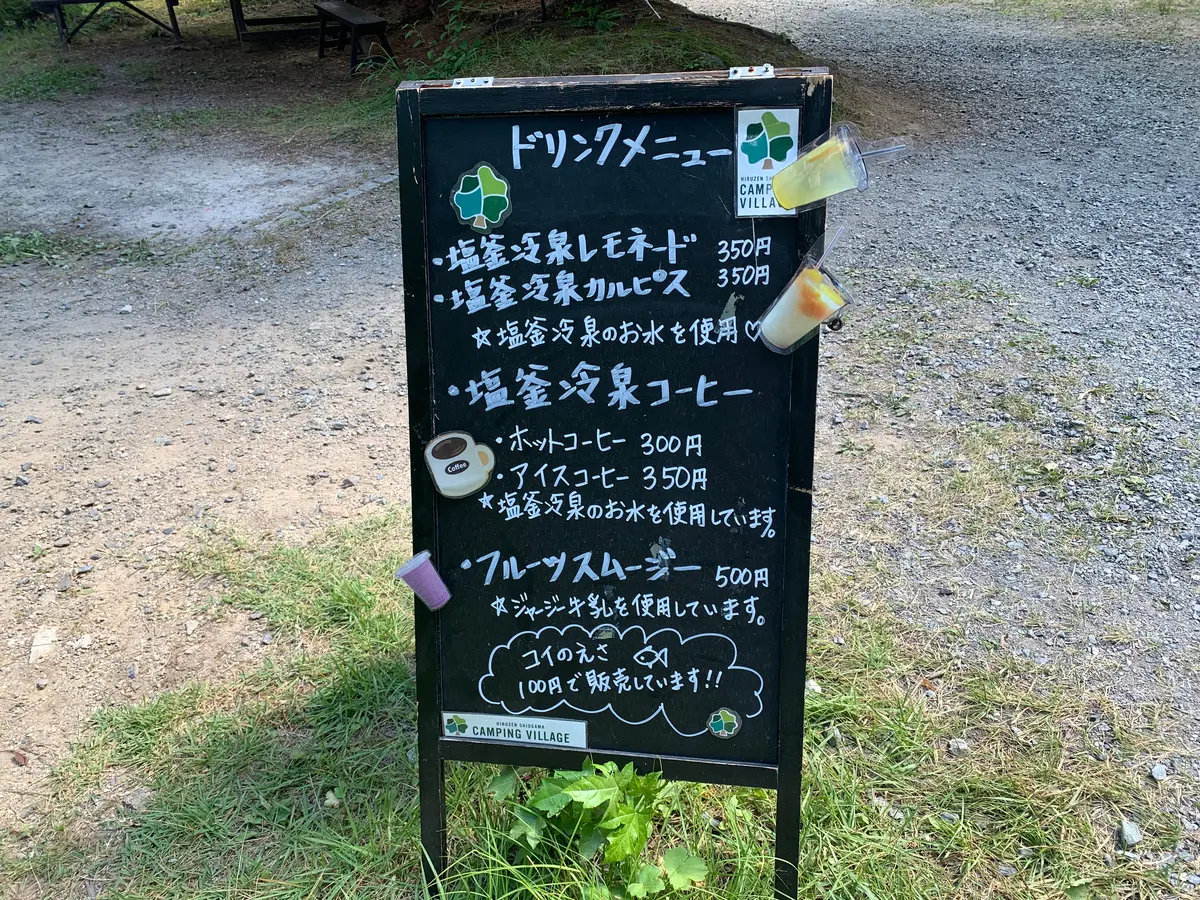 ドリンクメニュー
CAMP
VILLA
・塩釜冷泉レモネード 350円
・塩釜冷泉カルピス 350円
☆塩釜冷泉のお水を使用♡
・塩釜冷泉コーヒー
・ホットコーヒー 300円
・アイスコーヒー 350円
Coffee
☆塩釜冷泉のお水を使用しています。
・フルーツスムージー 500円
☆ジャージー牛乳を使用しています。
コイのえさ
100円で販売しています!!
HIRUZEN SHIOGAMA
CAMPING VILLAGE